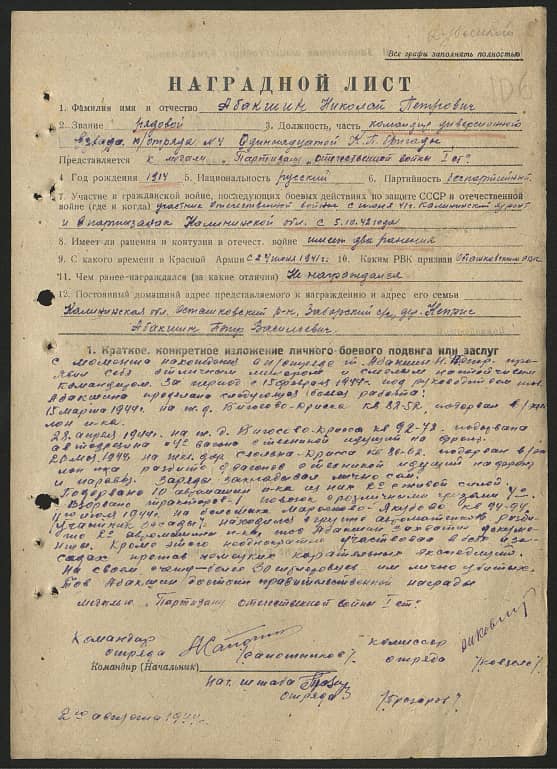 Все графы заполнять полностью
НАГРАДНОЙ ЛИСТ
1. Фамилия имя и отчество Абакшин Николай Петрович
2. Звание рядовой 3. Должность, часть командир диверсионного
взвода п/отряда №4 Одиннадцатой К.П. бригады
Представляется к медали „Партизану отечественной войны I ст."
4. Год рождения 1914 5. Национальность русский 6. Партийность беспартийный
7. Участие в гражданской войне, последующих боевых действиях по защите СССР и отечественной
войне (где и когда) участник отечественной войны с июня 41г. Калининский фронт
и в партизанах Калининской обл. с 5.10.42 года
8. Имеет ли ранения и контузии в отечест. войне имеет два ранения
9. С какого времени в Красной Армии с 24 июня 1941г. 10. Каким РВК призван Осташковским РВК
11. Чем ранее награждался (за какие отличия) Не награждался
12. Постоянный домашний адрес представляемого к награждению и адрес его семьи
Калининская обл. Осташковский р-н, Заборский с/с, дер.
Абакшин Петр Васильевич
1. Краткое, конкретное изложение личного боевого подвига или заслуг
С момента нахождения в п/отряде т. Абакшин Н. Петр. про-
явил себя отличным минером и смелым настойчивым
командиром. За период с 15 февраля 1944г. под руководством тов.
Абакшина проделана следующая боевая работа:
15 марта 1944г. на ж.д. Бигосово-Краска кв 83-52 подорван в/эше-
лон п-ка.
28 апреля 1944г. на ж.д. Бигосово-Краска кв 92-78 подорвана
автодрезина и 4 вагона с техникой идущий на фронт.
20 мая 1944г на жел. дор кв 80-62 подорван в/эше-
лон п-ка разбито 9 вагонов с техникой идущий на фронт
и паровоз. Заряды закладывал лично сам.
Подорвано 10 автомашин п-ка из них 6 с живой силой.
Взорвано тракторов-1 повозок с различными грузами 4.
июля 1944г. на большаке кв 94-94
участник засады, находясь в группе автоматчиков разби-
то 2 автомашины п-ка, тов Абакшин захватил докумен-
ты. Кроме этого неоднократно участвовал в боях и за-
садах против немецких карательных экспедиций.
На своем счету более 30 гитлеровцев им лично убитых.
Тов Абакшин достоин правительственной награды
медалью „Партизану отечественной войны I ст."
Командир
отряда
Комиссар
отряда
Командир (Начальник)
Нач. штаба
отряда
августа 1944г.